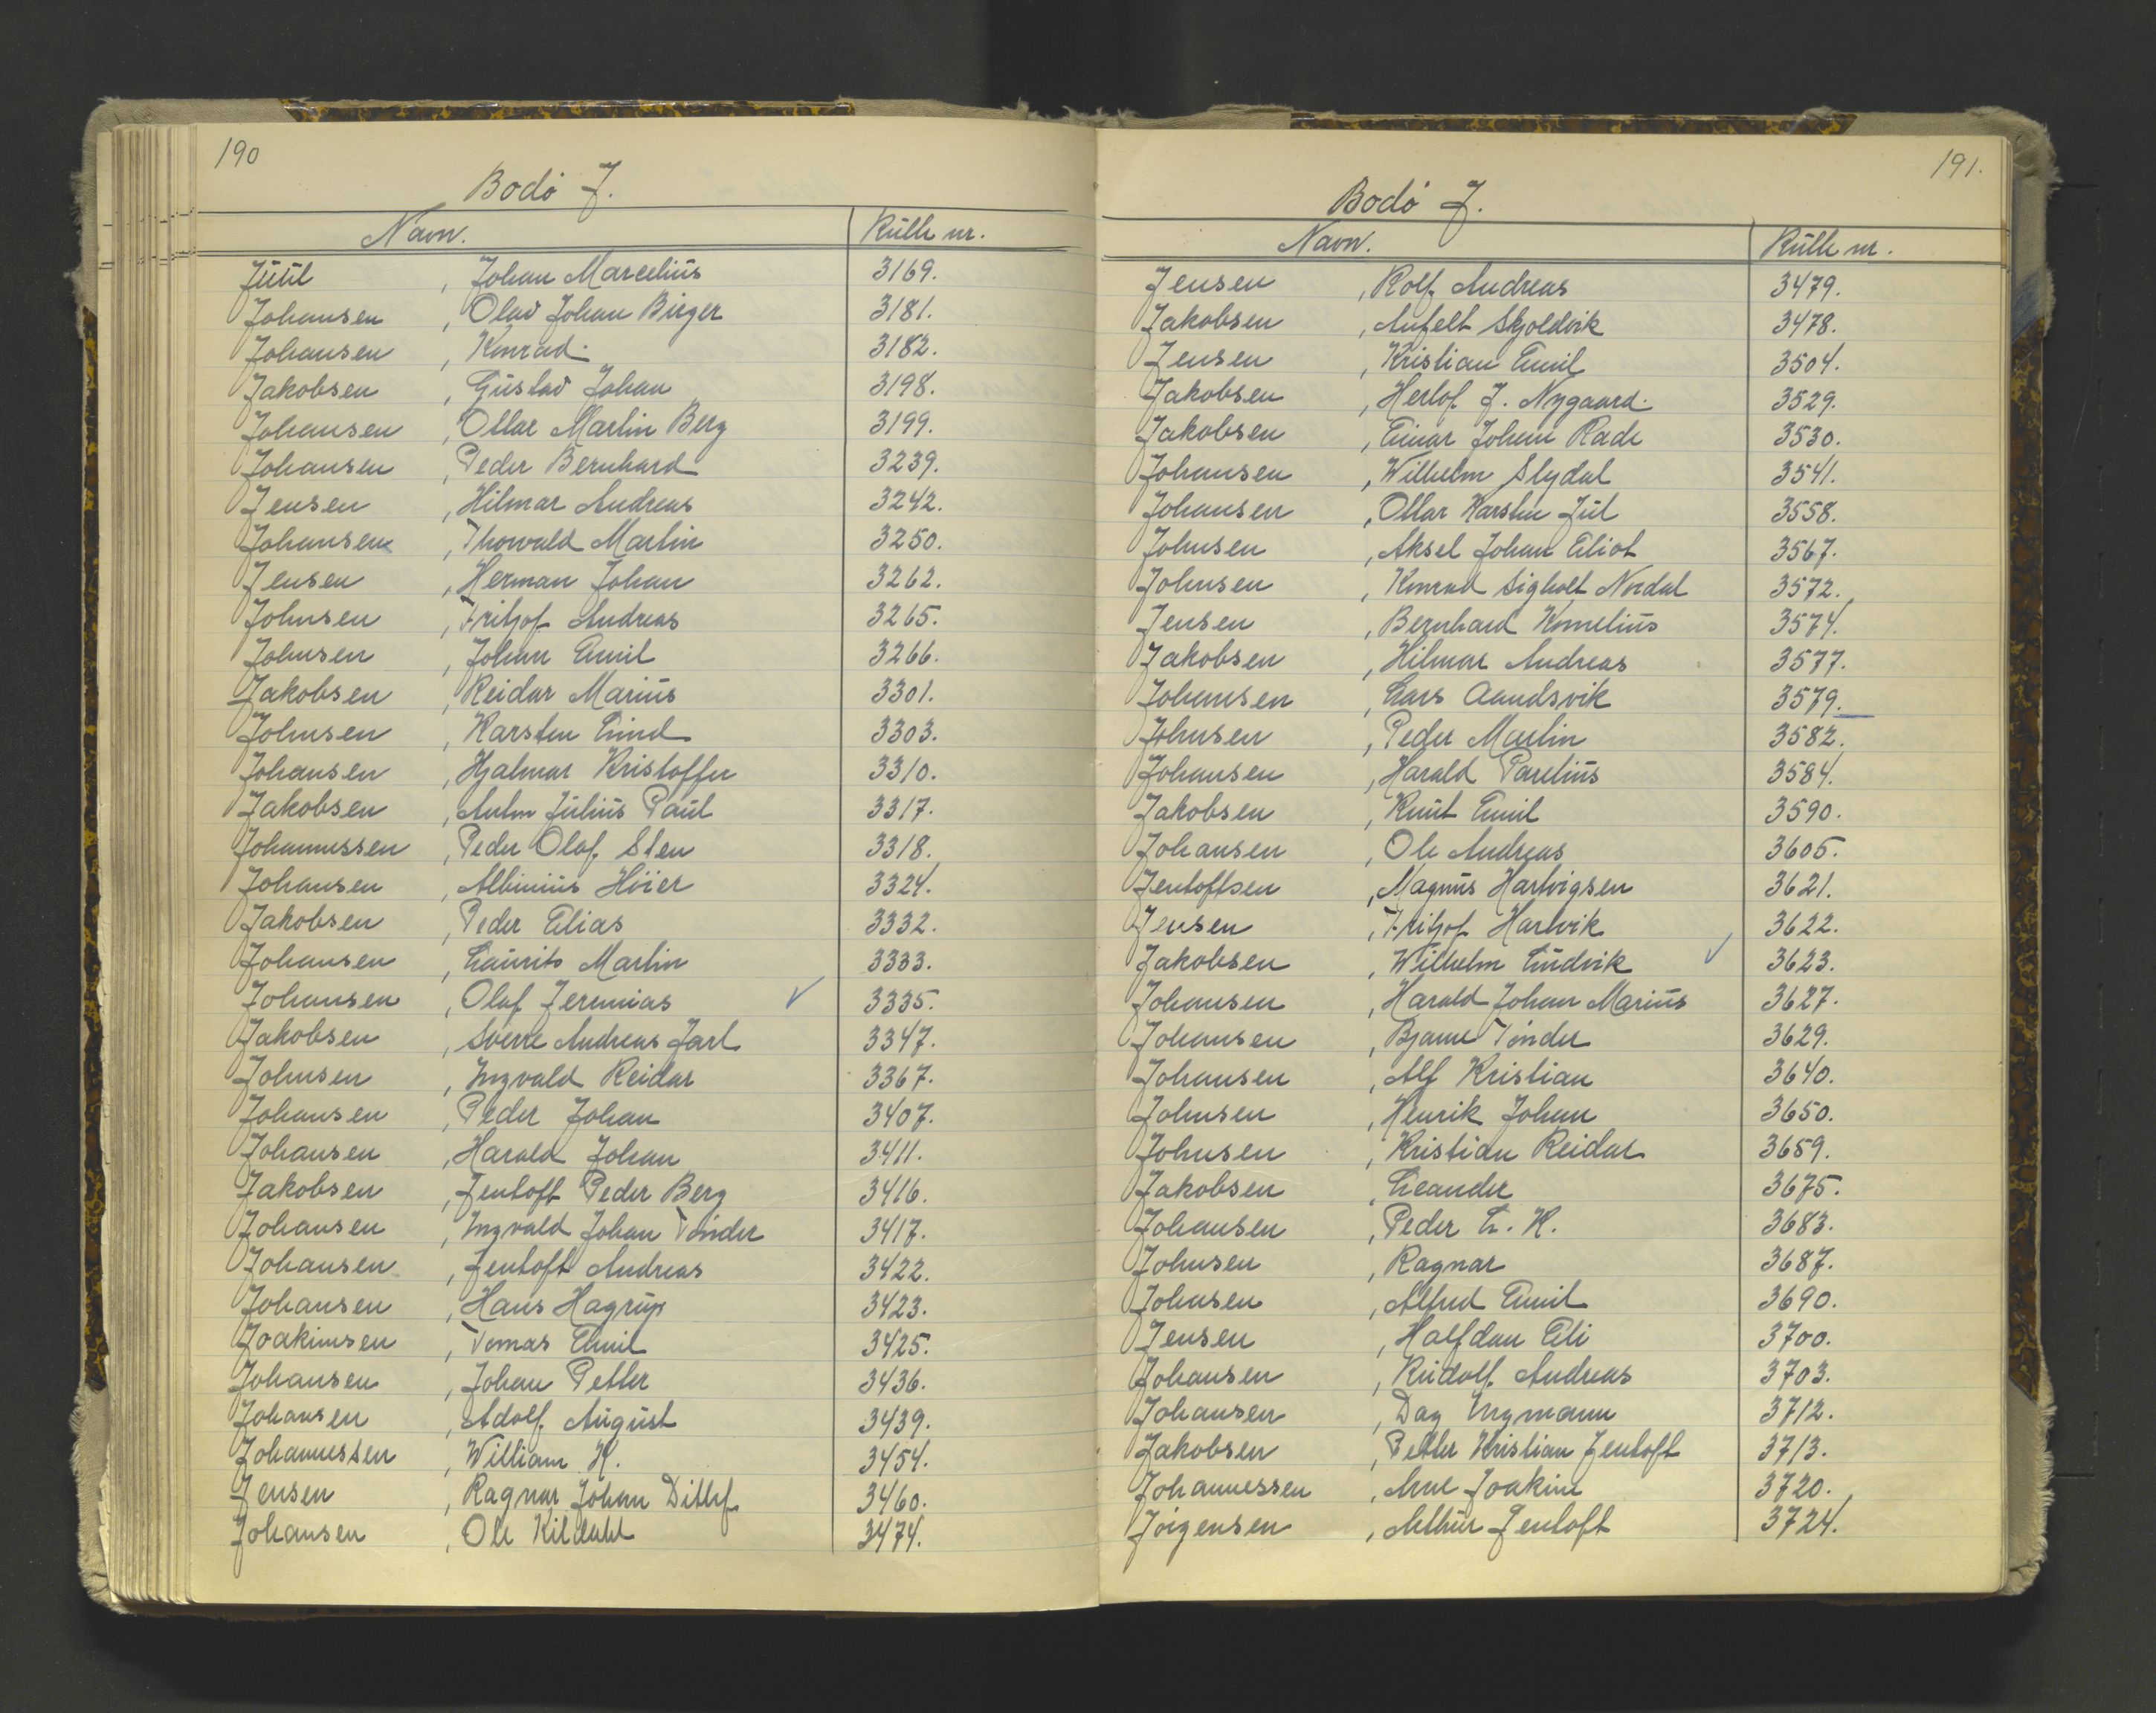 190
Bodö J.
Navn. Rulle nr.
Juul, Johan Marcelius 3169.
Johansen, Olav Johan Birger 3181.
Johansen, Konrad. 3182.
Jakobsen, Gustav Johan 3198.
Johansen, Ottar Martin Berg 3199.
Johansen, Peder Bernhard 3239.
Jensen, Hilmar Andreas 3242.
Johansen, Thorvald Martin 3250.
Jensen, Herman Johan 3262.
Johnsen, Fritjof Andreas 3265.
Johnsen, Johan Emil 3266.
Jakobsen, Reidar Marius 3301.
Johnsen, Karsten 3303.
Johansen, Hjalmar Kristoffer 3310.
Jakobsen, Anton Julius Paul 3317.
Johannessen, Peder Olaf Sten 3318.
Johansen, Albinius Höier 3324.
Jakobsen, Peder Elias 3332.
Johansen, Laurits Martin 3333.
Johansen, Olaf Jeremias ✓ 3335.
Jakobsen, Sverre Andreas Jarl 3347.
Johnsen, Ingvald Reidar 3367.
Johansen, Peder Johan 3407.
Johansen, Harald Johan 3411.
Jakobsen, Jentoft Peder Berg 3416.
Johansen, Ingvald Johan Tönder 3417.
Johansen, Jentoft Andreas 3422.
Johansen, Hans Hagrup 3423.
Joakimsen, Tomas Emil 3425.
Johansen, Johan Petter 3436.
Johansen, Adolf August 3439.
Johannessen, William K. 3454.
Jensen, Ragnar Johan Ditlef 3460.
Johansen, Ole Kildahl 3474.
191.
Bodö J.
Navn. Rulle nr.
Jensen, Rolf Andreas 3479.
Jakobsen, Anfelt Skjoldvik 3478.
Jensen, Kristian Emil 3504.
Jakobsen, Herlof J. Nygaard. 3529.
Jakobsen, Einar Johan Rade 3530.
Johansen, Wilhelm Slydal 3541.
Johansen, Ottar Karsten Jul 3558.
Johnsen, Aksel Johan Eliot 3567.
Johnsen, Konrad Sigholt Nordal 3572.
Jensen, Bernhard Kornelius 3574.
Jakobsen, Hilmar Andreas 3577.
Johansen, Lars Aandsvik 3579.
Johnsen, Peder Martin 3582.
Johansen, Harald Parelius 3584.
Jakobsen, Knut Emil 3590.
Johansen, Ole Andreas 3605.
Jentoftsen, Magnus Hartvigsen 3621.
Jensen, Fritjof Hartvik 3622.
Jakobsen, Wilhelm Ludvik ✓ 3623.
Johansen, Harald Johan Marius 3627.
Johansen, Bjarne Tönder 3629.
Johansen, Alf Kristian 3640.
Johnsen, Henrik Johan 3650.
Johnsen, Kristian Reidar 3659.
Jakobsen, Leander 3675.
Johansen, Peder L. K. 3683.
Johnsen, Ragnar 3687.
Johnsen, Alfred Emil 3690.
Jensen, Halfdan Eli 3700.
Johansen, Rudolf Andreas 3703.
Johansen, Dag Ingmann 3712.
Jakobsen, Petter Kristian Jentoft 3713.
Johannessen, Arne Joakim 3720.
Jörgensen, Arthur Jentoft 3724.